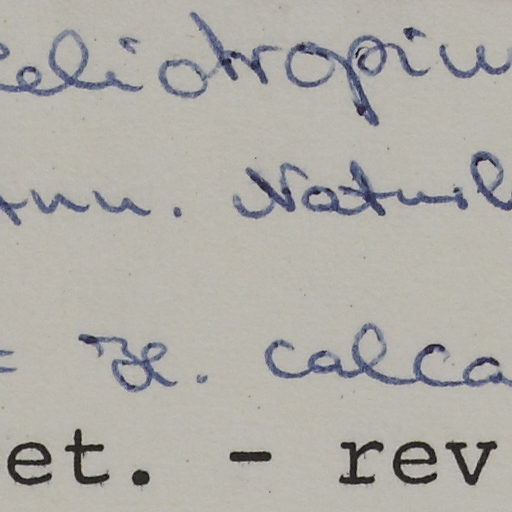 eliotropiu
Ann. Naturh
= H. calca
et. - rev